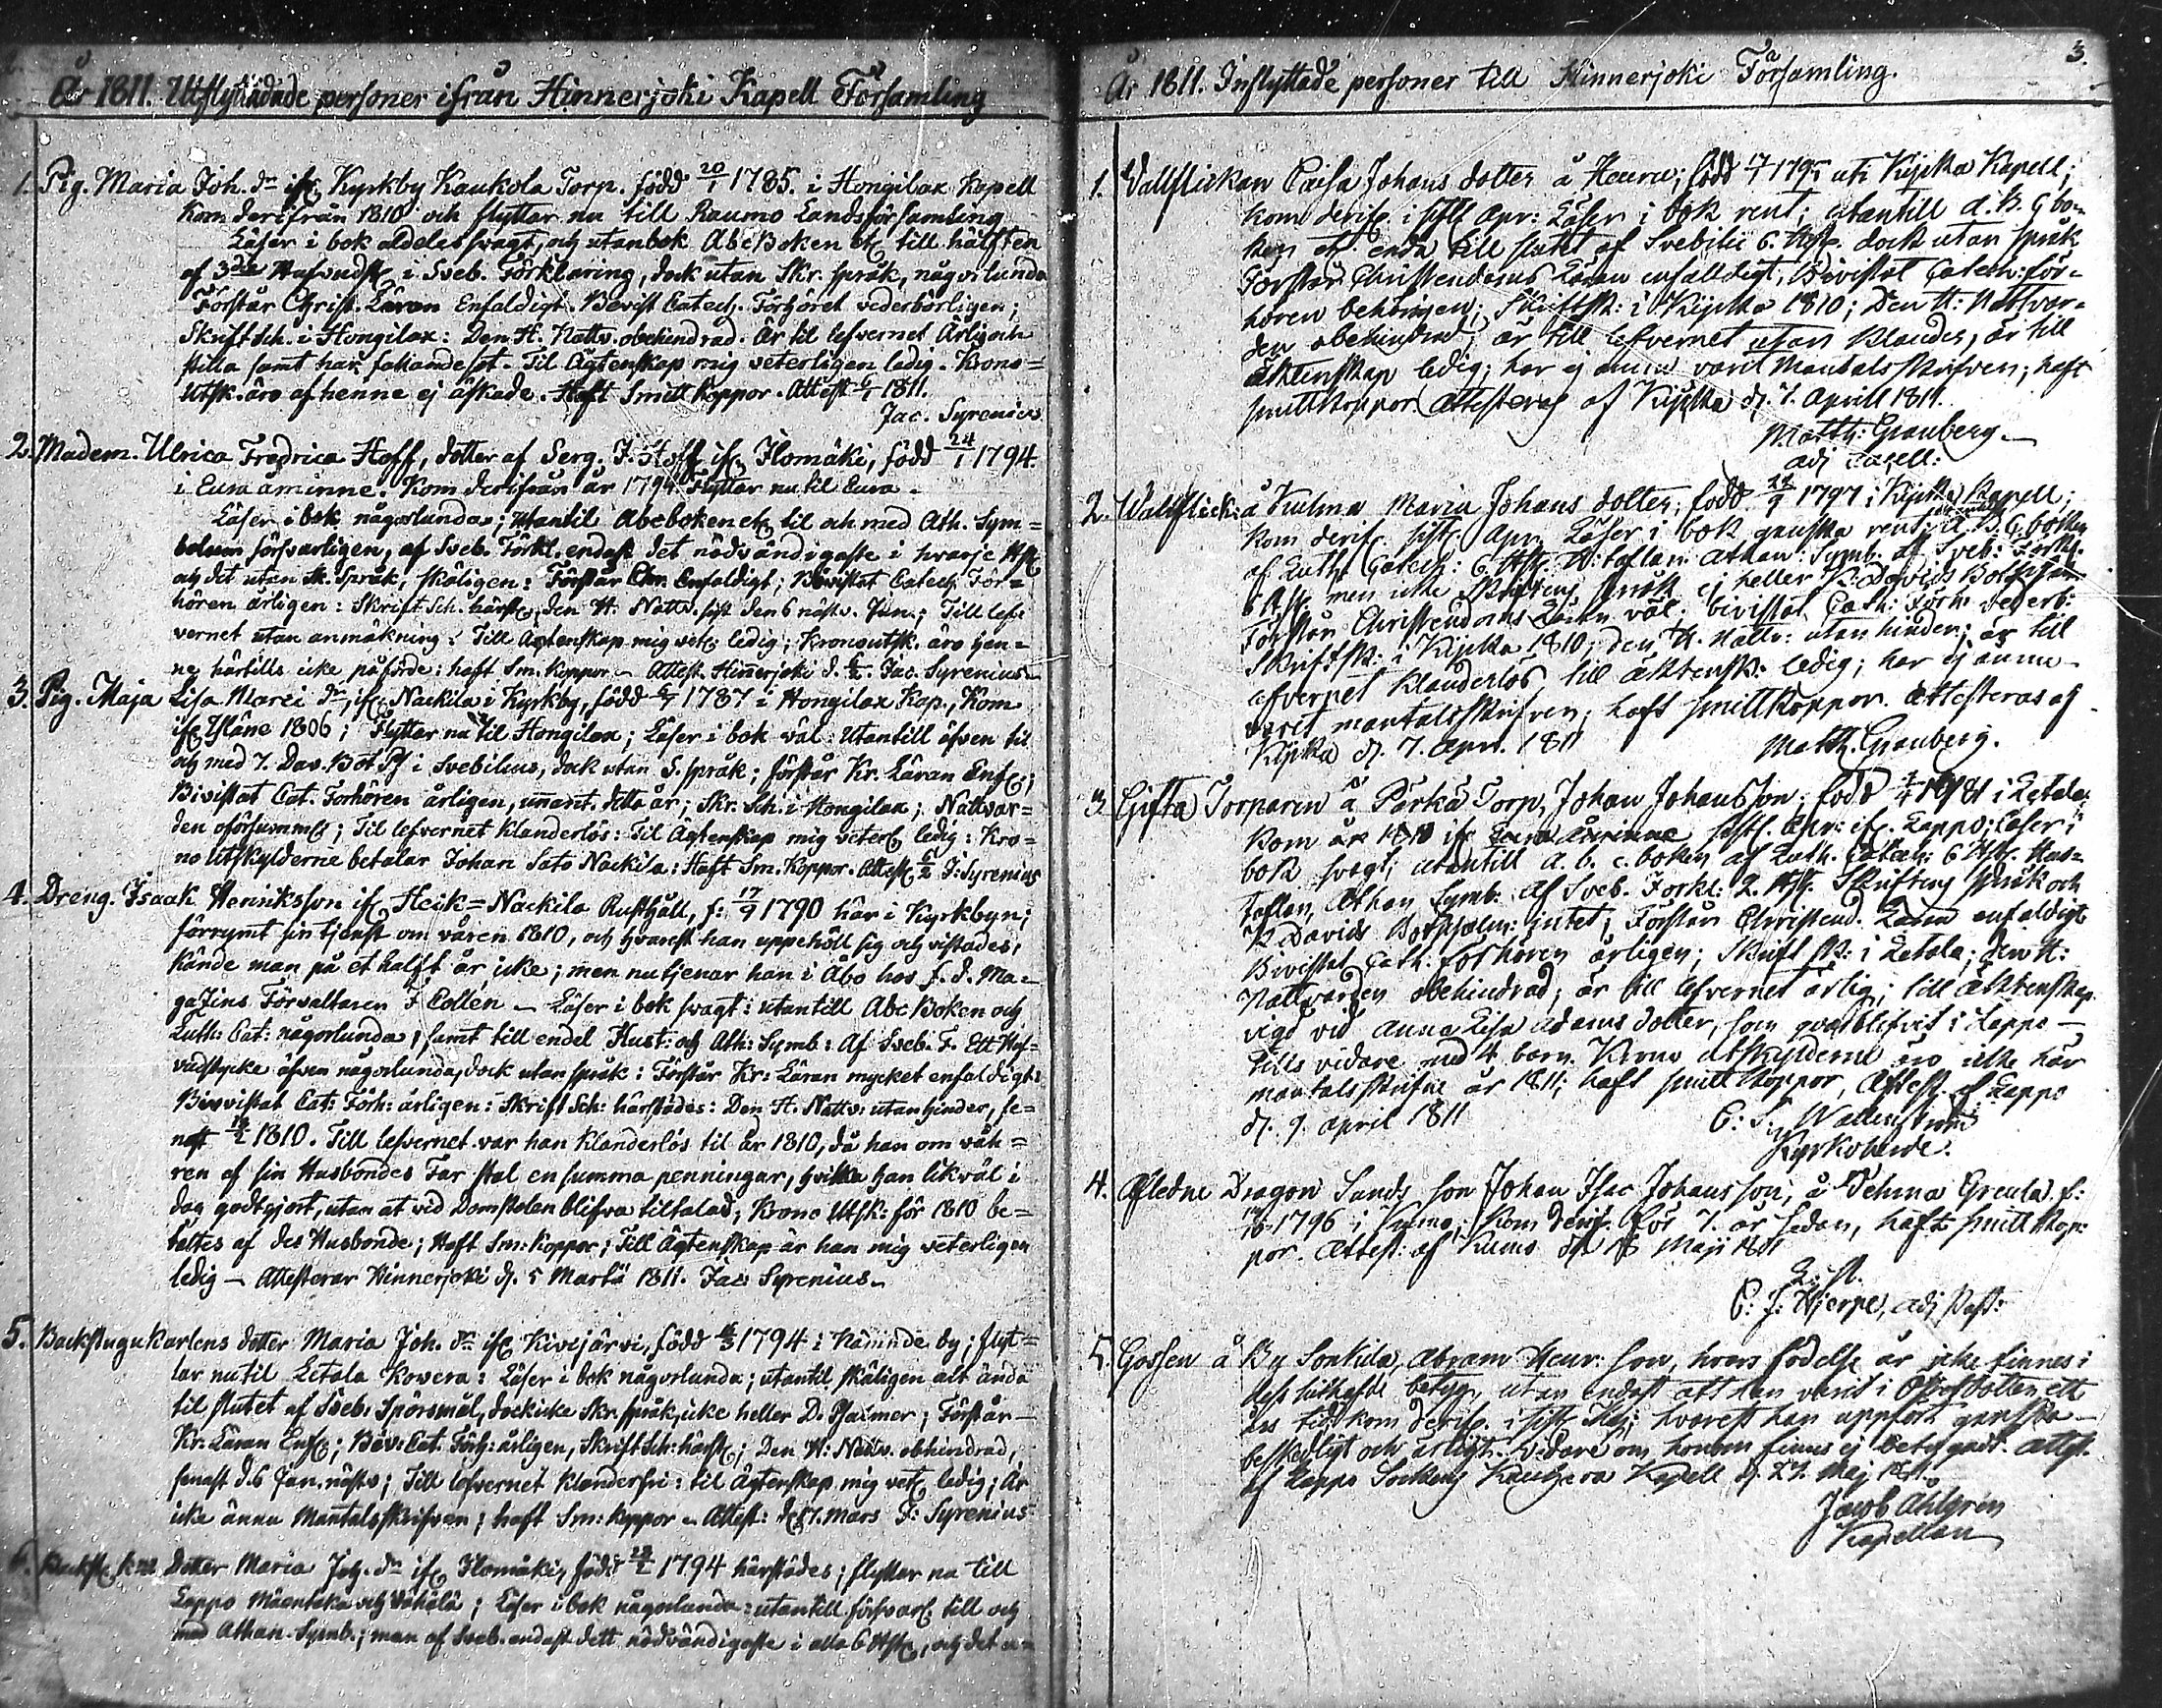 År 1811. Utflyttade personer ifrån Hinnerjoki Kapell Församling
1. Pig. Maria Joh. dr ifr. Kyrkby Kaukola Torp. född 20/1 1785. i Hongilax Kapell
kom derifrån 1810 och flyttar nu till Raumo Landsförsamling
Läser i bok aldeles svagt, och utanbok Abc Boken etc till hälften
af 3dje Hufvudst. i Sveb. Förklaring, dock utan Skr. språk, någorlunda
Förstår Christ. Läran Enfaldigt. Bevist Catech. Förhöret vederbörligen;
Skriftsch. i Hongilax: Den H. Nattv. obehindrad. Är til lefvernet Ärlig och
stilla samt har fallandesot. Til Ägtenskap mig veterligen ledig. Krono=
Utsk. äro af henne ej äskade. Haft Smittkoppor. Attest 6/1 1811.
Jac. Syrenius
2. Madem. Ulrica Fredrica Hoff, dotter af Serg. J. Hoff ifr. Ilomäki, född 24/1 1794.
i Eura åminne. Kom derifrån år 1794 Flyttar nu til Eura.
Läser i bok någorlunda; Utantil Abcboken etc til och med Ath. Sym=
bolum försvarligen, af Sveb. Förkl. endast det nödvändigaste i hvarje Hst.
och det utan Sk. Språk, skäligen: Förstår Chr. Enfaldigt; Bivistat Catech. För=
hören årligen: Skrift Sch. härst. den H. Nattv. sist den 6 nästv. Jan.; Till lef=
vernet utan anmärkning. Till Ägtenskap mig vet. ledig; Kronoutsk. äro hen=
ne härtills icke påförde: haft Sm. koppor – Attest. Hinnerjoki d. 6/2. Jac. Syrenius
3. Pig. Maja Lisa Marci dr, ifr. Nackila i Kyrkby, född 6/7 1787 i Hongilax Kap., Kom
ifr. Yläne 1806; Flyttar nu til Hongilax; Läser i bok väl: Utantill äfven til
och med 7. Dav. Bot Ps i Svebilius, dock utan S. språk; förstår Kr. Läran Enf.;
Bivistat Cat. Förhören årligen, undant. detta år; Skr. Sch. i Hongilax; Nattvar=
den oförsummel; Til lefvernet klanderlös: Til Ägtenskap mig veterl. ledig: Kro=
no Utskylderne betalar Johan Sato Nackila: Haft Sm. Koppor. Attest. 6/2 J: Syrenius
4. Dreng. Isaak Henriksson ifr. Heik=Nackila Rusthåll, f: 17/9 1790 här i Kyrkbyn;
förrymt sin tjenst om våren 1810, och hvarest han uppehöll sig och vistades,
kände man på et halft år icke; men nu tjenar han i Åbo hos f. d. Ma=
gazins Förvaltaren J Collén – Läser i bok svagt: utantill Abc Boken och
Luth: Cat: någorlunda, samt till endel Hust: och Ath: Symb: Af Sveb. F. Ett Huf=
vudstycke äfven någorlunda, dock utan språk: Förstår Kr: Läran mycket enfaldigt:
Bivistat Cat: Förh: årligen: Skrift Sch: härstädes: Den H. Nattv: utan hinder, se=
nast 18/2 1810. Till lefvernet var han klanderlös til år 1810, då han om våh=
ren af sin Husbondes Far stal en summa penningar, hvilka han likväl i
dag godtgjort, utan at vid Domstolen blifva tiltalad, Krono Utsk: för 1810 be=
taltes af des Husbonde; Haft Sm: koppor; Till Ägtenskap är han mig veterligen
ledig – Attesterar Hinnerjoki d. 5 Martii 1811. Jac: Syrenius.
5. Backstugukarlens dotter Maria Joh. dr ifr. Kivijärvi, född 16/3 1794 i Nämnde by; flyt=
tar nu til Letala Kovera: Läser i bok någorlunda; utantil skäligen alt ända
til slutet af Sveb. Spörsmål, dock icke Skr. språk, icke heller D. Psalmer; Förstår
Kr: Läran Enf.; Biv: Cat. Förh: årligen, Skrift Sch: härst.; Den H: Nattv. obhindrad,
senast d. 6 Jan. nästv; Till lefvernet klanderfri: til Ägtenskap mig vet. ledig; Är
icke ännu Mantalsskrifven; haft Sm: koppor – Attest: d. 17. Mars J: Syrenius
6. Dotter Maria Joh. dr ifr. Ilomäki, född 1794 härstädes; flyttar nu till
Lappo Mäentaka och Vähälä; Läser i bok någorlunda: utantill försvarl. till och
med Athan. Symb.; man af Sveb. endast dett nödvändigaste i alla 6 Hst., och det u=
3.
År 1811. Inflyttade personer till Hinnerjoki Församling.
1. Vallflickan Caisa Johans dotter å Heura; född 1795 uti Kjulka Kapell;
kom derifr. i sistl Apr: Läser i bok rent; utantill A. B. C bo=
ken et. enda till slutet af Svebilii 6. Hst. dock utan språk
Förstår Christendoms Läran enfalldigt, Bivistat Catech: för=
hören behörigen; Skriftsk: i Kjulka 1810; Den H: Nattvar=
den obehindrad; är till lefvernet utan klander, är till
äktenskap ledig; har ej ännu varit Mantalsskrifven; haft
smittkoppor Attesteras af Kjulka d. 7. Aprill 1811.
Matth: Granberg.
adj Capell:
2. Wallflick: å Kulma Maria Johans dotter, född 1797 i Kjulka Kapell;
kom derifr. sistl. Apr. Läser i bok ganska rent; A. B. C. boken
af Luth. Catech: 6. Hst. H: taflan Athan: Symb. af Sveb: Förkl.
6 Hst. men icke Skriftens språk ej heller K: Davids Botpsalm.
Förstår Christendoms Läran väl; bivistat Cath: Förh: vederb:
Skriftsk: i Kjulka 1810; den H. Nattv: utan hinder; är till
lefvernet klanderlös, till äktensk: ledig; har ej ännu
varit mantalsskrifven; haft smittkoppor. Attesteras af
Kjulka d. 7. Apr. 1811 Matth. Granberg.
3. Gifta Torparen å Pärkä Torp, Johan Johansson; född 1781 i Letala;
Kom år 1810 ifr. Eura åminne sistl. Apr: ifr. Lappo; Läser i
bok svagt; utantill A. b. c. boken af Luth. Catech: 6 Hst. Hus=
taflan, Athan Symb: Af Sveb. Forkl: 2. Hst. Skriftens språk och
K. Davids Botpsalm: intet; Förstår Christend. Läran enfaldigt
Bivistat Cath: förhören årligen; Skrift sk: i Letala; Den H:
Nattvarden obehindrad; är till lefvernet ärlig; till äktenskap
vigd vid Anna Lisa Adams dotter, som qvarblifvit i Lappo –
tills vidare med 4 barn. Krono utskylderne äro icke här
mantalsskrifne år 1811; haft smittkoppor, Attest. af Lappo
d. 9. April 1811 C: F: Wallenström
Kyrkoherde.
4. Afledne Dragon Sands son Johan Isac Johansson, å Vehma Greula f:
1796 i Kumo, Kom derifr. för 7. år sedan, haft smittkop=
por. Attest: af Kumo d. 18 Maji 1811
C: J: Hjerpe, adj Past:
5. Gossen å By Sonkila, Abram Henr: son, hvars födelse år icke finnes i
dess hithafde betyg, utan endast att han varit i Österbotten ett
års tid: kom derifr. i sistl. Maj; hvarest han uppfört ganska
beskedligt och ärligt. Vidare om honom finnes ej betygadt. Attest.
af Lappo Sockens Kauhava Kapell d. 27. Maj 1811.
Jacob Ahlgren
Kapellan